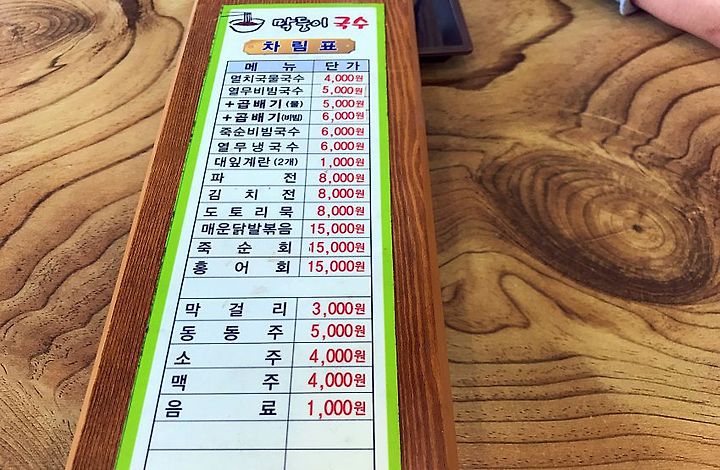 막둥이 국수
차림표
메뉴 단가
멸치국물국수 4,000원
열무비빔국수 5,000원
+곱배기(물) 5,000원
+곱배기(비빔) 6,000원
죽순비빔국수 6,000원
열무냉국수 6,000원
대잎계란(2개) 1,000원
파전 8,000원
김치전 8,000원
도토리묵 8,000원
매운닭발볶음 15,000원
죽순회 15,000원
홍어회 15,000원
막걸리 3,000원
동동주 5,000원
소주 4,000원
맥주 4,000원
음료 1,000원